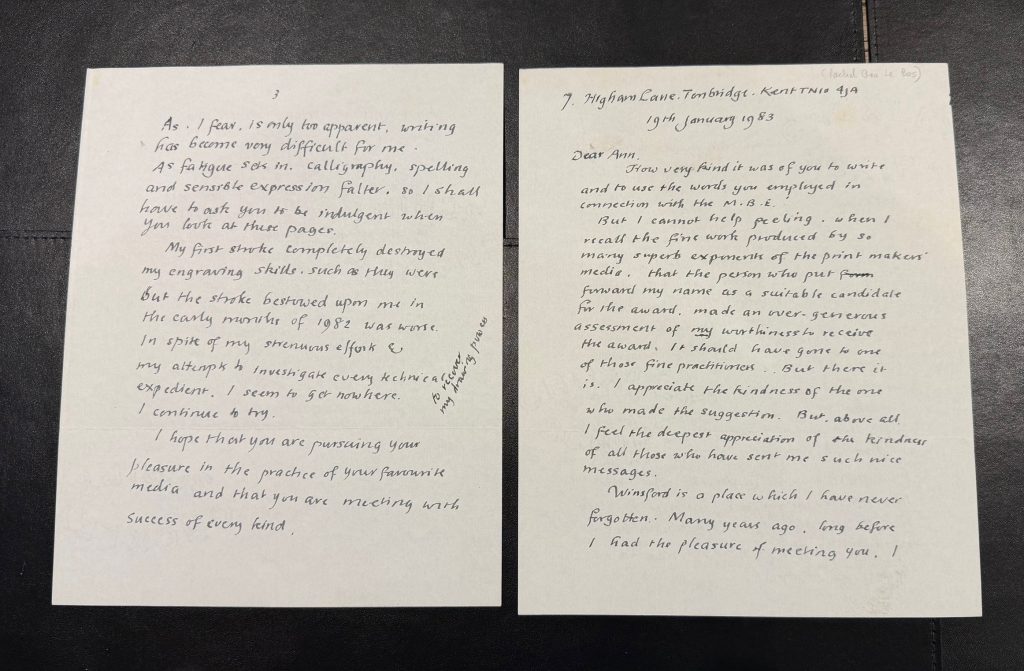 3
As, I fear, is only too apparent, writing
has become very difficult for me.
As fatigue sets in, calligraphy, spelling
and sensible expression falter, so I shall
have to ask you to be indulgent when
you look at these pages.
My first stroke completely destroyed
my engraving skills, such as they were
But the stroke bestowed upon me in
the early months of 1982 was worse.
In spite of my strenuous efforts &
my attempts to investigate every technical
expedient, I seem to get nowhere.
I continue to try.
to recover
my drawing powers
I hope that you are pursuing your
pleasure in the practice of your favourite
media and that you are meeting with
success of every kind.
7. Higham Lane. Tonbridge. Kent TN10 4JA
19th January 1983
Dear Ann,
How very kind it was of you to write
and to use the words you employed in
connection with the M.B.E.
But I cannot help feeling, when I
recall the fine work produced by so
many superb exponents of the print makers'
media, that the person who put
forward my name as a suitable candidate
for the award, made an over-generous
assessment of my worthiness to receive
the award. It should have gone to one
of those fine practitioners.. But there it
is. I appreciate the kindness of the one
who made the suggestion. But, above all,
I feel the deepest appreciation of the kindness
of all those who have sent me such nice
messages.
Winsford is a place which I have never
forgotten. Many years ago, long before
I had the pleasure of meeting you, I